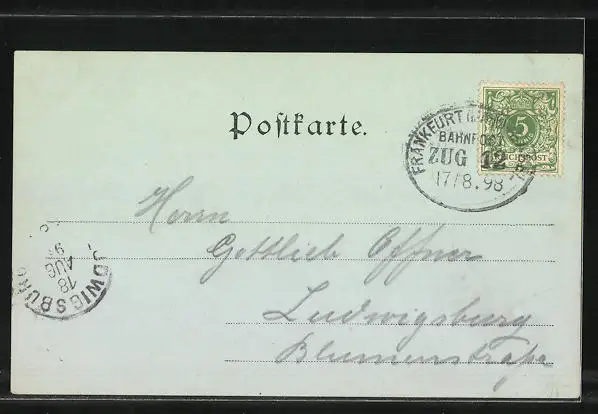 Postkarte.
FRANKFURT
BAHNPOST
ZUG 12
17/8.98
5
REICHSPOST
Herrn
Gottlieb Offner
Ludwigsburg
Blumenstraße
LUDWIGSBURG
18
AUG